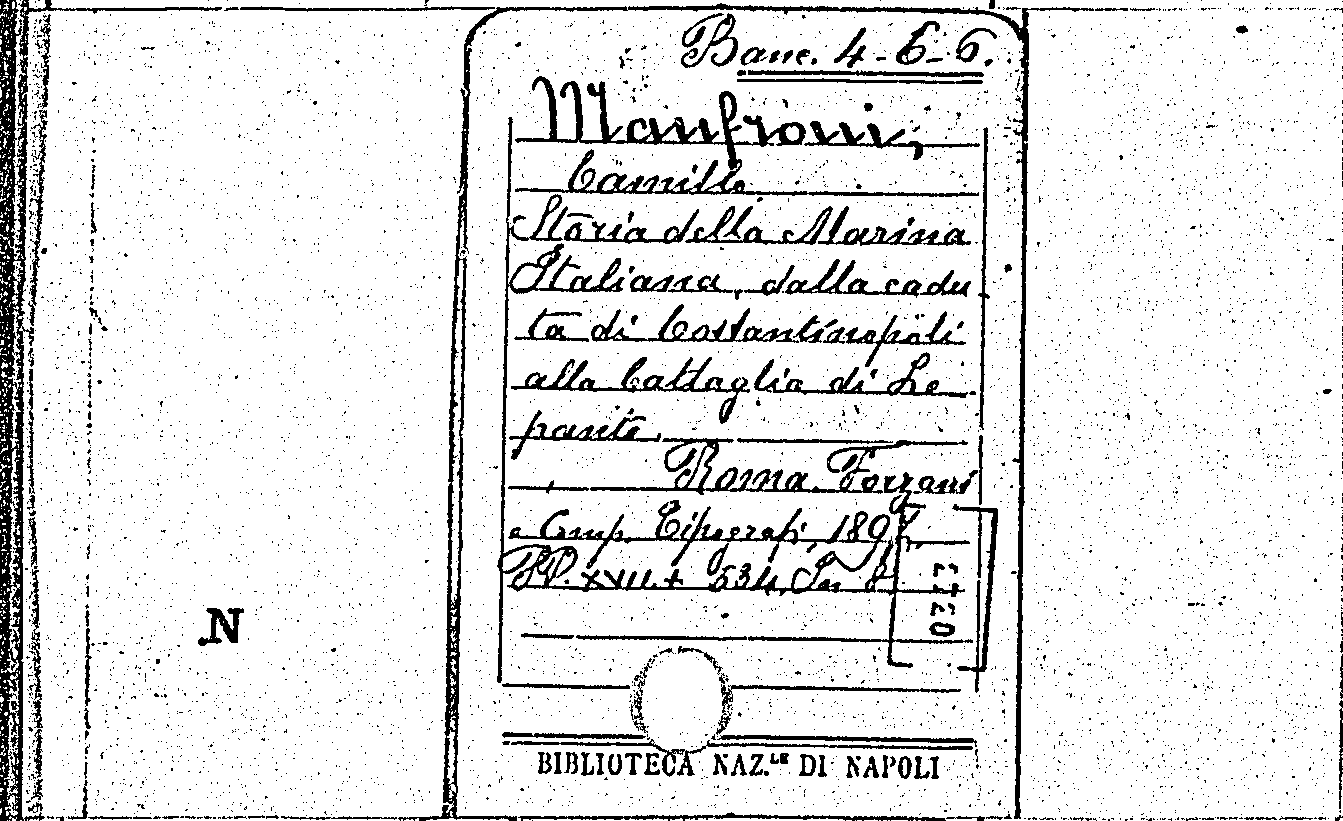 Banc. 4-6-6.
Manfroni,
Camillo
Storia della Marina
Italiana, dalla cadu
ta di Costantinopoli
alla battaglia di Le
panto.
Roma. Forzani
e Comp. Tipografi, 1897.
PP. XVIII + 534, In 8º
N
BIBLIOTECA NAZ.LE DI NAPOLI